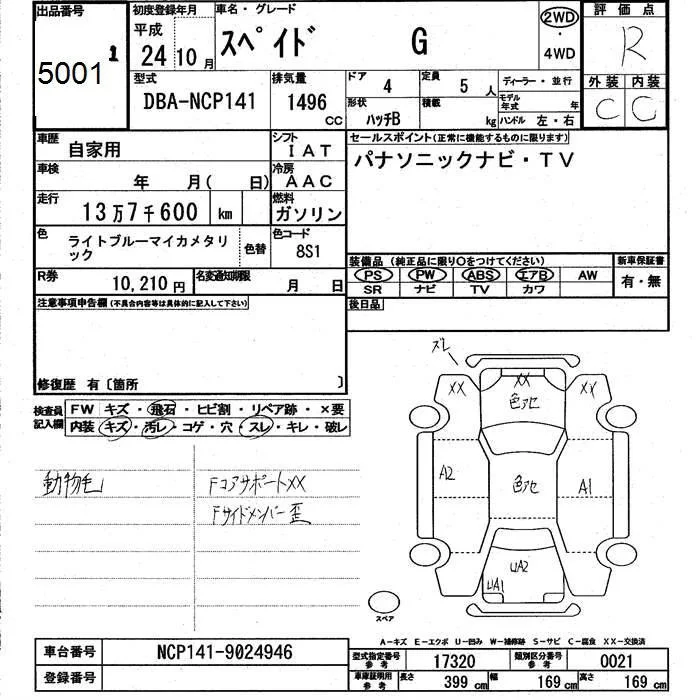 出品番号
5001
1
初度登録年月
平成
24 10月
車名・グレード
スペイド G
2WD
・
4WD
評価点
R
型式
DBA-NCP141
排気量
1496
cc
ドア 4
定員 5 人
ディーラー・並行
形状 ハッチB
積載 kg
モデル年式 年
ハンドル 左・右
外装 内装
C C
車歴 自家用
シフト
IAT
車検 年 月( 日)
冷房
AAC
走行 13万7千600 km
燃料
ガソリン
色 ライトブルーマイカメタリ
ック
色替
色コード
8S1
R券 10,210円
名変通知期限 月 日
セールスポイント(正常に機能するものに限ります)
パナソニックナビ・TV
装備品 (純正品に限り○をつけてください)
新車保証書
PS PW ABS エアB AW
SR ナビ TV カワ
有・無
後日品
注意事項申告欄(不具合内容等は具体的に記入して下さい)
修復歴 有〔箇所 〕
検査員
記入欄
FW キズ・飛石・ヒビ割・リペア跡・×要
内装 キズ・汚レ・コゲ・穴・スレ・キレ・破レ
動物毛
FコアサポートXX
Fサイドメンバー歪
ズレ
XX XX XX
色アセ
A2
色アセ
A1
UA2
UA1
スペア
A-キズ E-エクボ U-凹み W-補修跡 S-サビ C-腐食 XX-交換済
車台番号 NCP141-9024946
登録番号
型式指定番号
参考
17320
類別区分番号
参考
0021
車庫証明用
参考
長さ 399 cm 幅 169 cm 高さ 169 cm